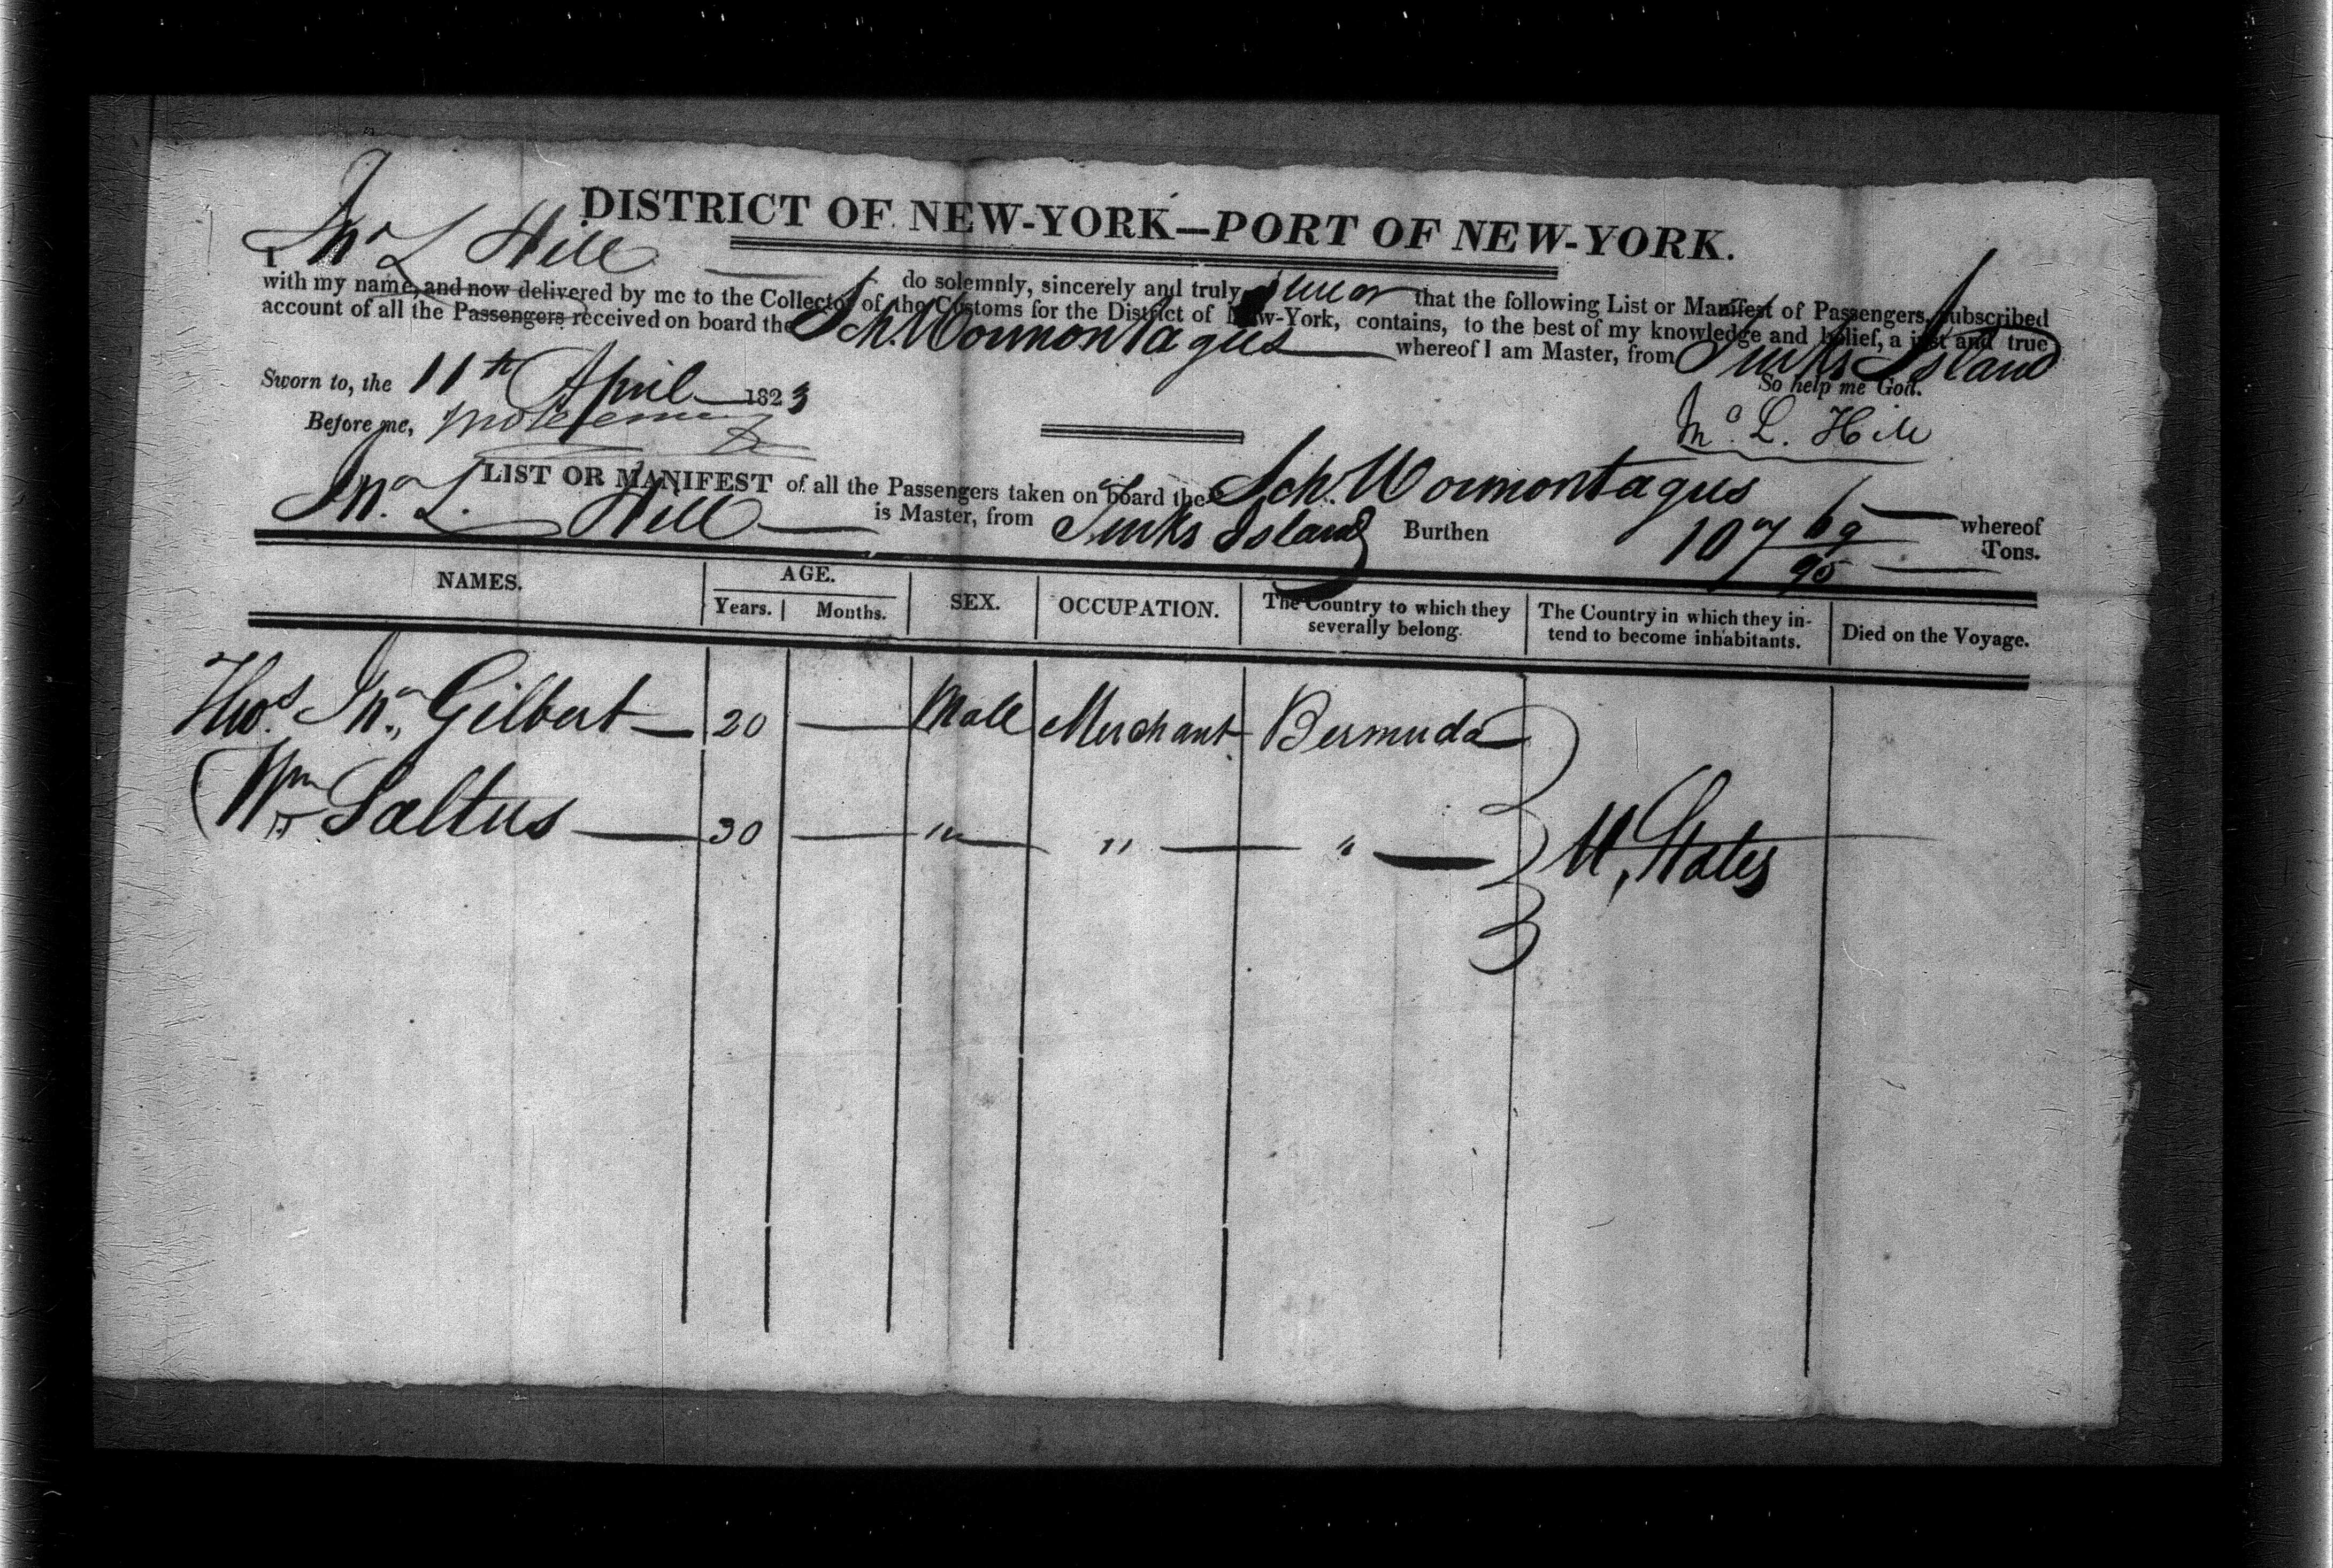 DISTRICT OF NEW-YORK—PORT OF NEW-YORK.
I Jno L Hill do solemnly, sincerely and truly swear that the following List or Manifest of Passengers, subscribed
with my name, and now delivered by me to the Collector of the Customs for the District of New-York, contains, to the best of my knowledge and belief, a just and true
account of all the Passengers received on board the Sch. Wormontagus whereof I am Master, from Turks Island
Sworn to, the 11th April 1823 So help me God.
Before me,
Jno. L. Hill
LIST OR MANIFEST of all the Passengers taken on board the Sch. Wormontagus whereof
Jno. L. Hill is Master, from Turks Island Burthen 107 69/95 Tons.
NAMES. AGE. Years. Months. SEX. OCCUPATION. The Country to which they severally belong. The Country in which they intend to become inhabitants. Died on the Voyage.
Thos. Jno. Gilbert — 20 — Male Merchant Bermuda
Wm Saltus — 30 — " — " — " — U, States